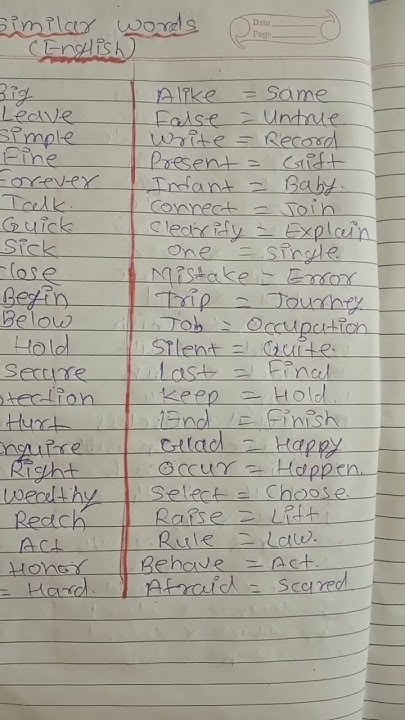 Similar words
(English)
Date
Page
Big
Leave
Simple
Fine
Forever
Talk.
Quick
Sick
Close
Begin
Below
Hold
Secure
otection
Hurt
nquire
Right
Wealthy
Reach
Act
Honor
= Hard.
Alike = Same
False = Untrue
Write = Record
Present = Gift
Infant = Baby.
Connect = Join
Clearify = Explain
One = Single
Mistake = Error
Trip = Journey
Job = Occupation
Silent = Quite.
Last = Final
Keep = Hold.
End = Finish
Glad = Happy
Occur = Happen.
Select = Choose.
Raise = Lift
Rule = Law.
Behave = Act.
Afraid = Scared